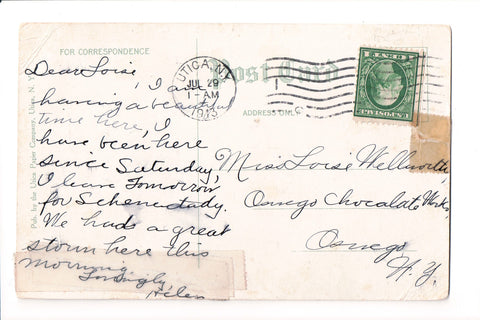 FOR CORRESPONDENCE
Post Card
ADDRESS ONLY
UTICA, N.Y.
JUL 29
1-AM
Dear Loise,
I am
having a beautiful
time here, I
have been here
since Saturday,
I leave Tomorrow
for Schenectady.
We had a great
storm here this
morning.
Lovingly,
Helen
Miss Loise Wellworth,
Oswego Chocalate Works,
Oswego
N.Y.
Pub. by the Utica Paper Company, Utica, N.Y.